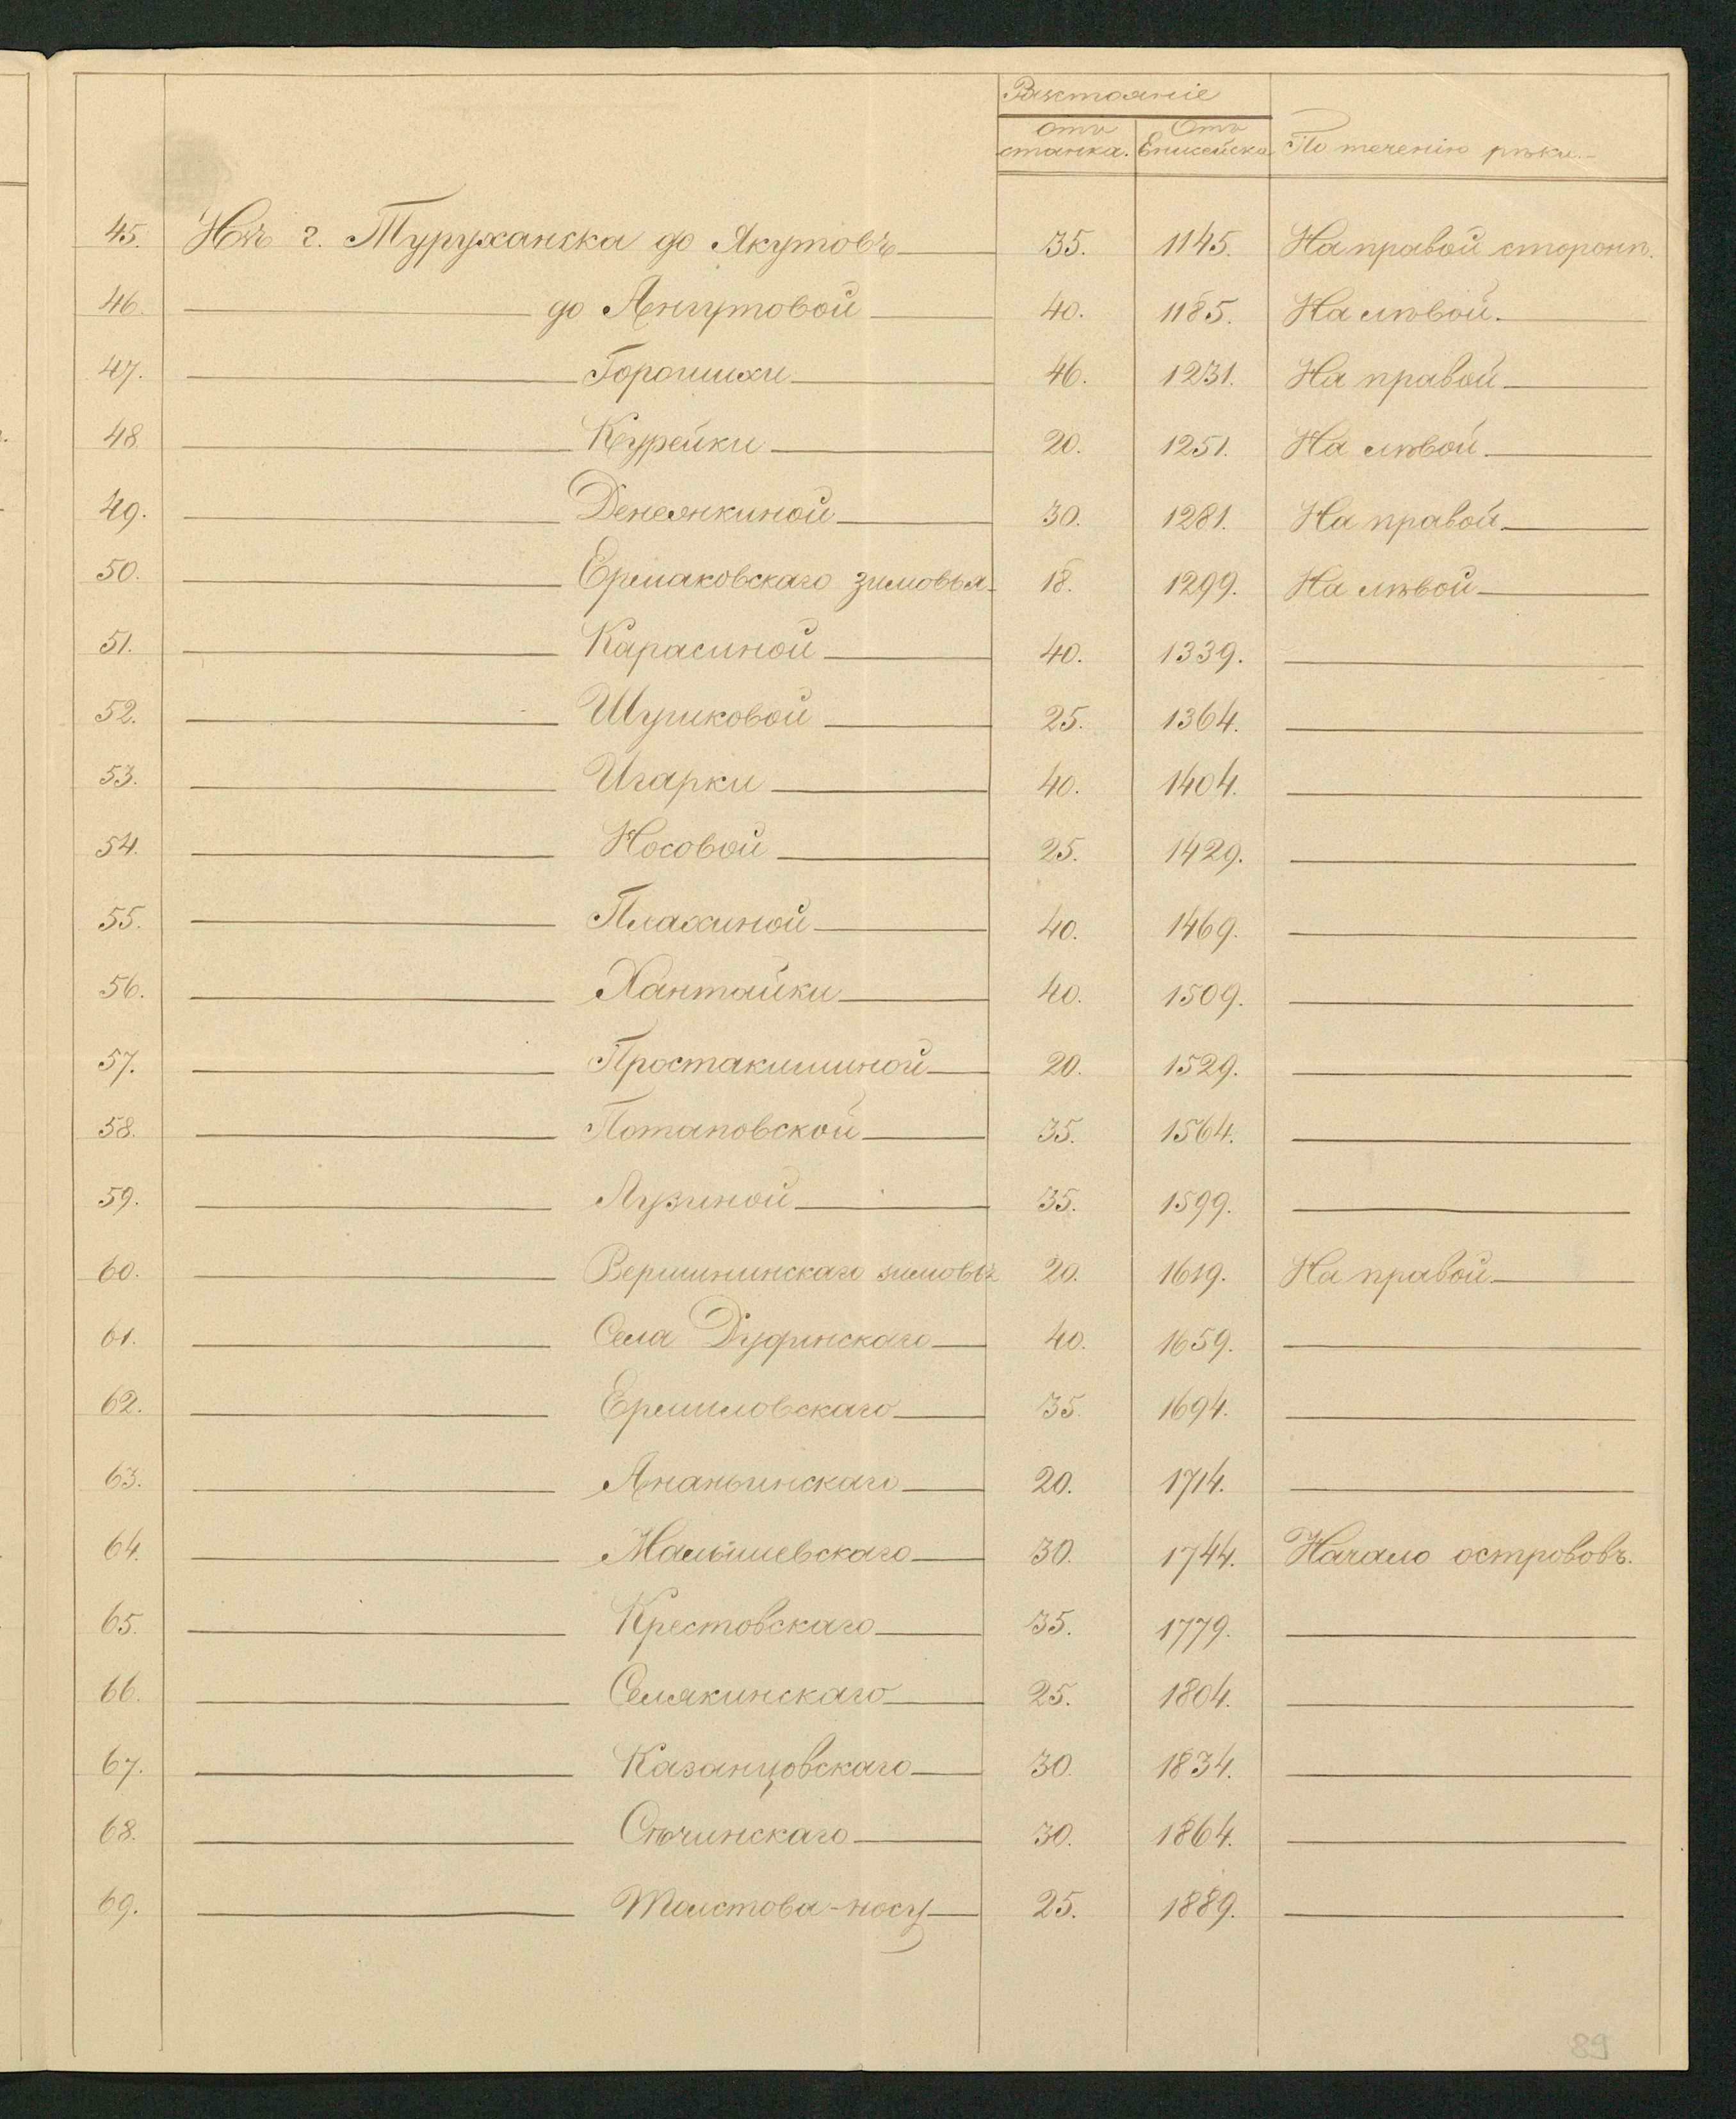 Разстояніе
отъ станка. Отъ Енисейска. По теченію рѣки.
45. Изъ г. Туруханска до Якутовъ 35. 1145. На правой сторонѣ.
46. до Ангутовой 40. 1185. На лѣвой.
47. Горошихи 46. 1231. На правой
48. Курейки 20. 1251. На лѣвой
49. Денежкиной 30. 1281. На правой
50. Ермаковскаго зимовья 18. 1299. На лѣвой
51. Карасиной 40. 1339.
52. Шушковой 25. 1364.
53. Игарки 40. 1404.
54. Носовой 25. 1429.
55. Плахиной 40. 1469.
56. Хантайки 40. 1509.
57. Простакишиной 20. 1529.
58. Потаповской 35. 1564.
59. Лузиной 35. 1599.
60. Вершининскаго зимовья 20. 1619. На правой
61. Села Дудинскаго 40. 1659.
62. Ермиловскаго 35. 1694.
63. Ананьинскаго 20. 1714.
64. Малышевскаго 30. 1744. Начало острововъ.
65. Крестовскаго 35. 1779.
66. Селякинскаго 25. 1804.
67. Казанцовскаго 30. 1834.
68. Сѣчинскаго 30. 1864.
69. Толстова-носу 25. 1889.
89